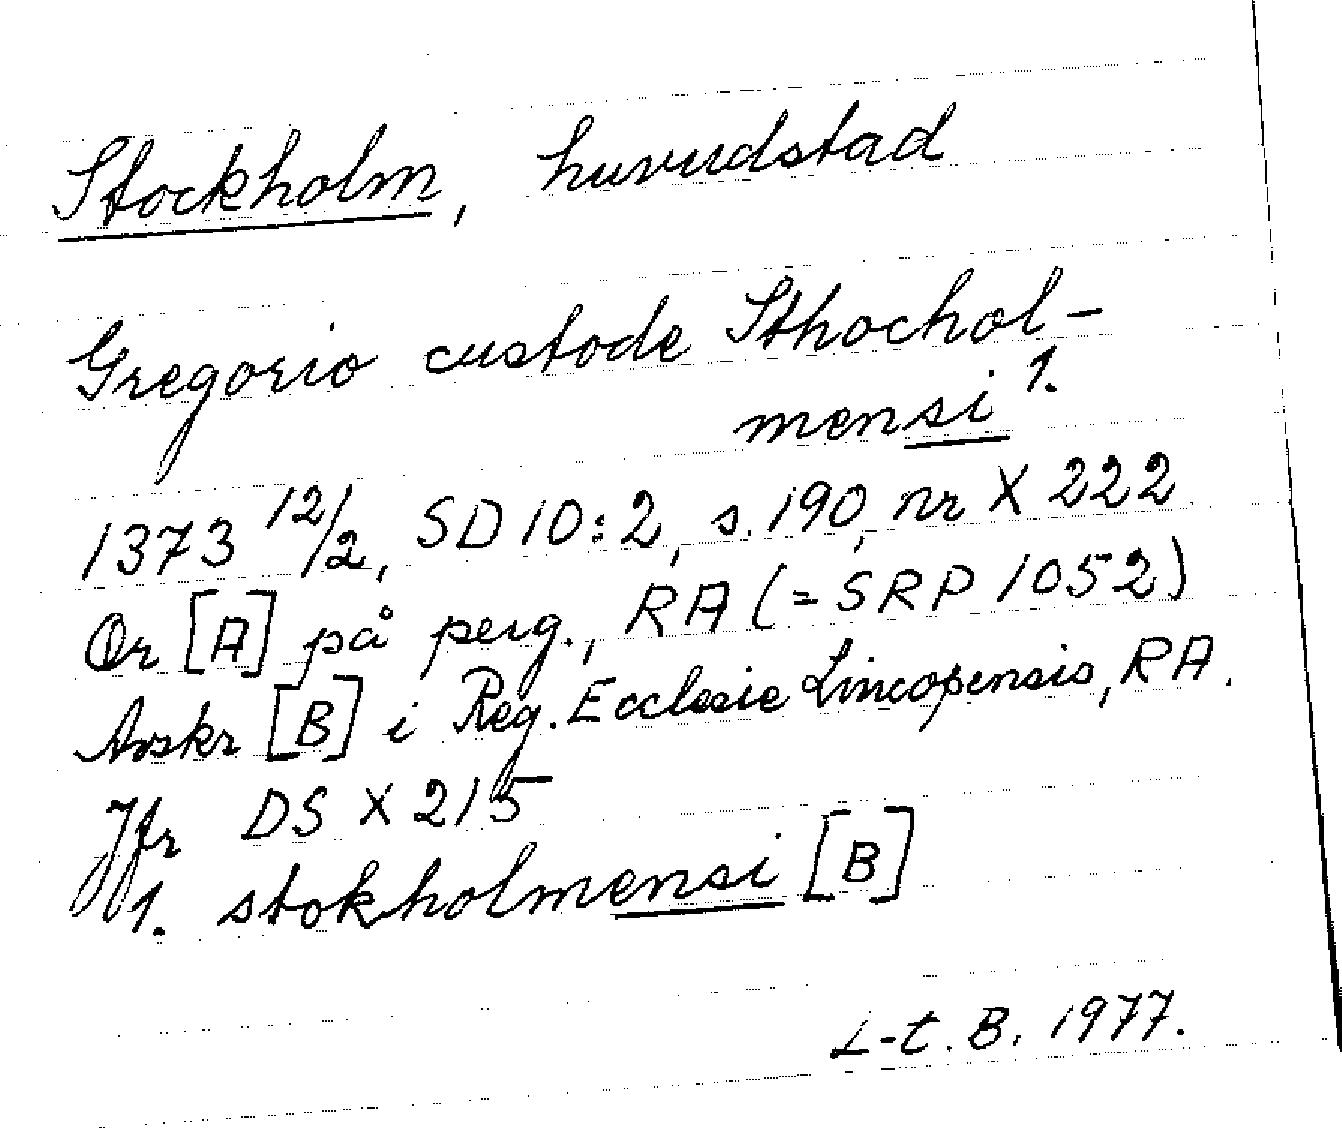 Stockholm, huvudstad
Gregorio custode Sthochol-
mensi 1.
1373 12/2, SD 10:2, s. 190, nr X 222
Or [A] på perg., RA (= SRP 1052)
Avskr [B] i Reg. Ecclesie Lincopensis, RA.
Jfr DS X 215
1. stokholmensi [B]
L-t. B. 1977.